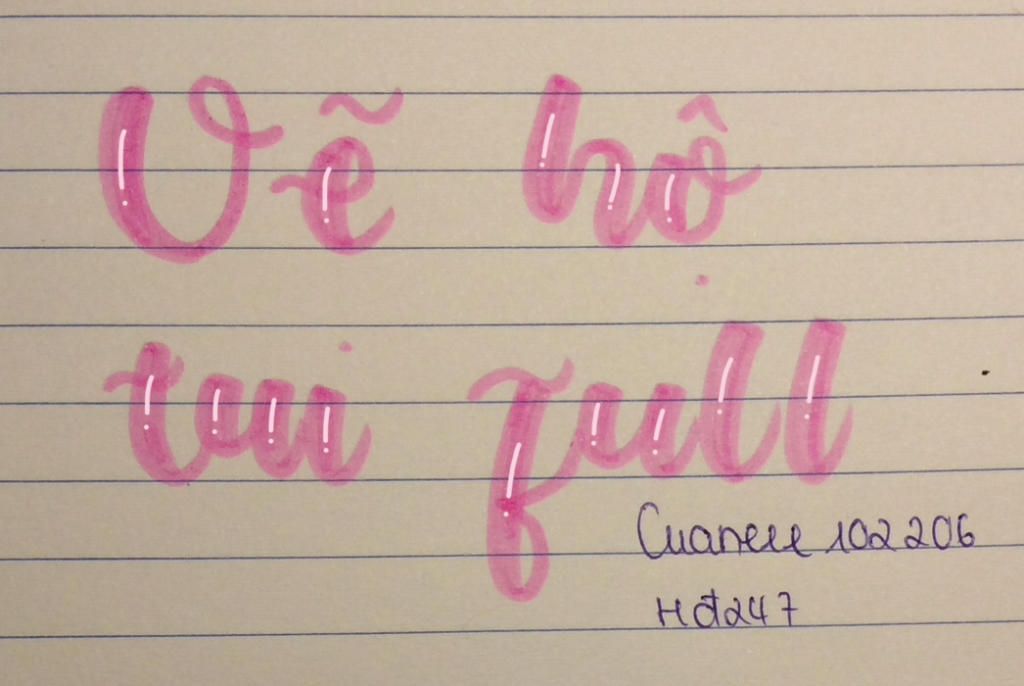 Vẽ hộ
tui full
Cuanele 102206
Hđ247